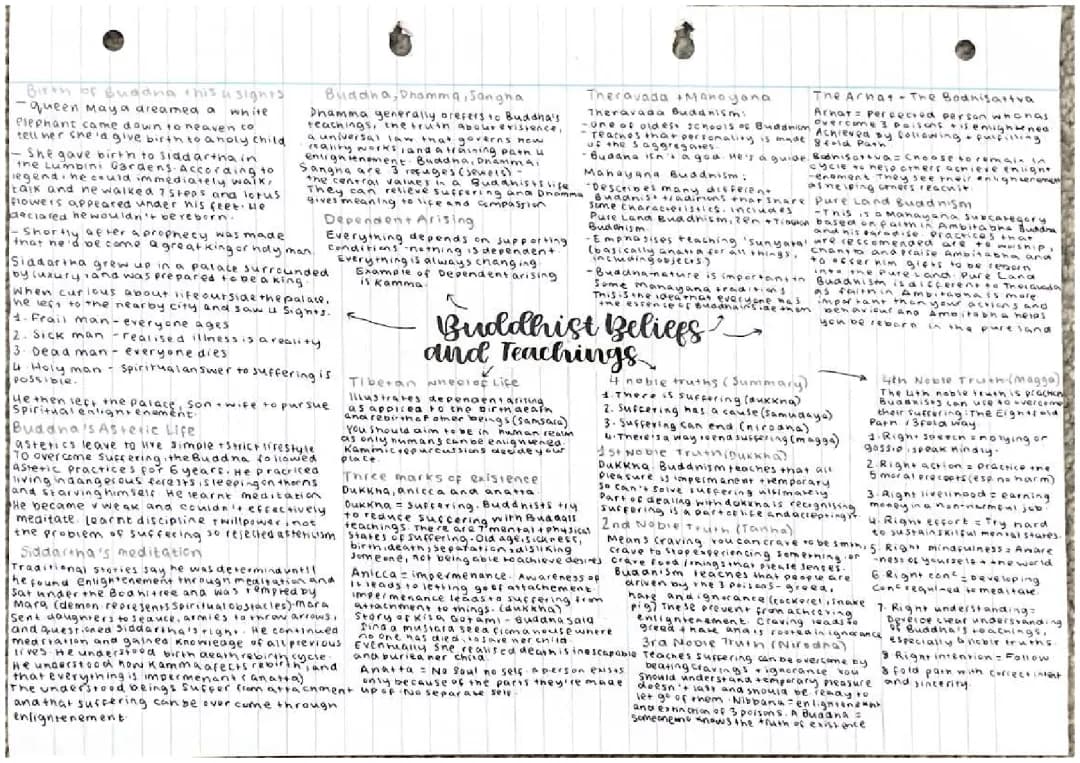 Birth of Buddha + his 4 signts
- Queen Maya dreamed a white
elephant came down to heaven to
tell her she'd give birth to a holy child
- She gave birth to Siddartha in
the Lumbini Gardens. According to
legend: he could immediately walk,
talk and he walked 7 steps and lotus
flowers appeared under his feet. He
declared he wouldn't be reborn.
- Shortly after a prophecy was made
that he'd become a great king or holy man
Siddartha grew up in a palace surrounded
by luxury, and was prepared to be a king.
When curious about life outside the palace,
he left to the nearby city and saw 4 signts.
1. Frail man - everyone ages
2. Sick man - realised illness is a reality
3. Dead man - everyone dies
4. Holy man - Spiritual answer to suffering is
possible.
He then left the palace, son + wife to pursue
Spiritual enlightenement.
Buddha's Astetic Life
astetics leave to live simple + strict lifestyle
To overcome suffering the Buddha followed
astetic practices for 6 years. He practiced
living in dangerous forests, sleeping on thorns
and starving himself. He learnt meditation
He became v weak and couldn't effectively
meditate. learnt discipline + willpower, not
the problem of suffering so rejected
Siddartha's meditation
Traditional stories say he was determind until
he found enlightenement through meditation and
sat under the Bodhi tree and was tempted by
Mara (demon represents Spiritual obstacles). Mara
sent daughters to seduce, armies to throw arrows,
and questioned Siddartha's right. He continued
meditation and gained knowledge of all previous
lives. He understood birth death rebirth cycle.
He understood how Kamma afects rebirth and
that everything is impermenent (anatta)
The understood beings suffer from attachment
and that suffering can be over come through
enlightenement.
Buddha, Dhamma, Sangha
Dhamma generally prefers to Buddha's
teachings, the truth about existence,
a universal law that governs how
reality works and a training path to
enlightenement. Buddha, Dhamma,
Sangha are 3 refuges (jewels) -
the central values in a Buddhists life
They can relieve suffering and Dhamma
gives meaning to life and compassion
Dependent Arising
Everything depends on supporting
conditions - nothing is dependent.
Everything is always changing
Example of Dependent arising
is Kamma.
Theravada + Mahayana
Theravada Budanism:
- One of oldest schools of Buddhism
- Teaches that personality is made
up of the 5 aggregates.
- Buddha isn't a god. He's a guide.
Mahayana Buddhism:
- Describes many different
Buddhist traditions that share
some characteristics. includes
Pure Land Buddhism, Zen + Tibetan
Buddhism.
- Emphasises teaching 'Sunyata'
(basically anatta for all things,
including objects)
- Buddha-nature is important in
Some mahayana traditions
This is the idea that everyone has
the essense of Buddha inside them
The Arhat - The Bodhisattva
Arhat = Perfected person who has
overcome 3 poisons + is enlightened
Achieved by following + fulfilling
8 fold Path
Bodhisattva = Choose to remain in
cycle to help others achieve enlight
-enement. They see their enlightenement
as helping others reach it
Pure Land Buddhism
- This is a Mahayana subcategory
based on faith in Amitabha Buddha
and his paradise. Practices that
are reccomended are to worship,
chant and praise Amitabha and
to offer him gifts to be reborn
into the Pure Land. Pure Land
Buddhism is different to Theravada
as faith in Amitabha is more
important than your actions and
behaviour and Amitabha helps
you be reborn in the pure land
Buddhist Beliefs
and Teachings
Tibetan Wheel of Life
Illustrates dependent arising
as applied to the birth death
and rebirth of other beings (Sansara)
You should aim to be in human realm
as only humans can be enlightened.
Kammic repurcussions decide your
place.
Three marks of existence
Dukkha, anicca and anatta.
Dukkha = suffering. Buddhists try
to reduce suffering with Buddah's
teachings. There are 7 mental + physical
states of suffering - Old age, sickness,
birth, death, separation, disliking
someone, not being able to achieve desires
Anicca = impermenance. Awareness of
it leads to letting go of attachement.
impermenance leads to suffering from
attachment to things. (dukkha)
Story of Kisa Gotami - Buddha said
find a mustard seed from a house where
no one has died, to save her child.
Eventually she realised death is inescapable
and buried her child.
Anatta = No soul no self. a person exists
only because of the parts they're made
up of. No separate self.
4 noble truths (Summary)
1. There is suffering (dukkha)
2. Suffering has a cause (Samudaya)
3. Suffering can end (nirodha)
4. There's a way to end suffering (magga)
1st Noble Truth (Dukkha)
Dukkha. Buddhism teaches that all
Pleasure is impermanent + temporary
so can't solve suffering ultimately
Part of dealing with dukkha is recognising
suffering is a part of life and accepting it.
2nd Noble Truth (Tanha)
Means craving. You can crave to be smth,
crave to stop experiencing something, or
crave food/things that please senses.
Buddhism teaches that people are
driven by the 3 poisons - greed,
hate and ignorance (cockerel, snake
pig) These prevent from achieving
enlightenement. Craving leads to
greed + hate and is rooted in ignorance
3rd Noble Truth (Nirodha)
Teaches suffering can be overcome by
beating cravings + ignorance. You
should understand temporary pleasure
doesn't last and should be ready to
let go of them. Nibbana = enlightenement
and extinction of 3 poisons. A Buddha =
someone who knows the truth of existence
4th Noble Truth (Magga)
The 4th noble truth is practices
Buddhists can use to overcome
their suffering: The Eightfold
Path / 3 fold way.
1. Right speech = no lying or
gossip, speak kindly.
2. Right action = Practice the
5 moral precepts (esp. no harm)
3. Right livelihood = earning
money in a non-harmful job.
4. Right effort = Try hard
to sustain skilful mental states.
5. Right mindfulness = Aware
-ness of yourself + the world
6. Right conc = developing
conc required to meditate.
7. Right understanding =
Develop clear understanding
of Buddha's teachings,
especially 4 noble truths.
8. Right intention = Follow
8 fold path with correct intent
and sincerity.